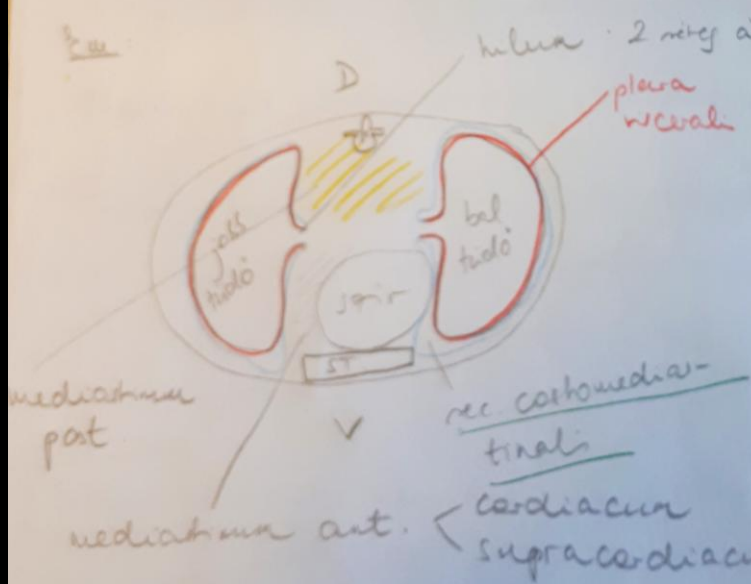 hilus 2 réteg á
D
pleura
visceralis
jobb
tüdő
bal
tüdő
szív
ST
mediastinum
post
V
rec. costomedias-
tinalis
mediastinum ant.
cardiacum
supracardiac